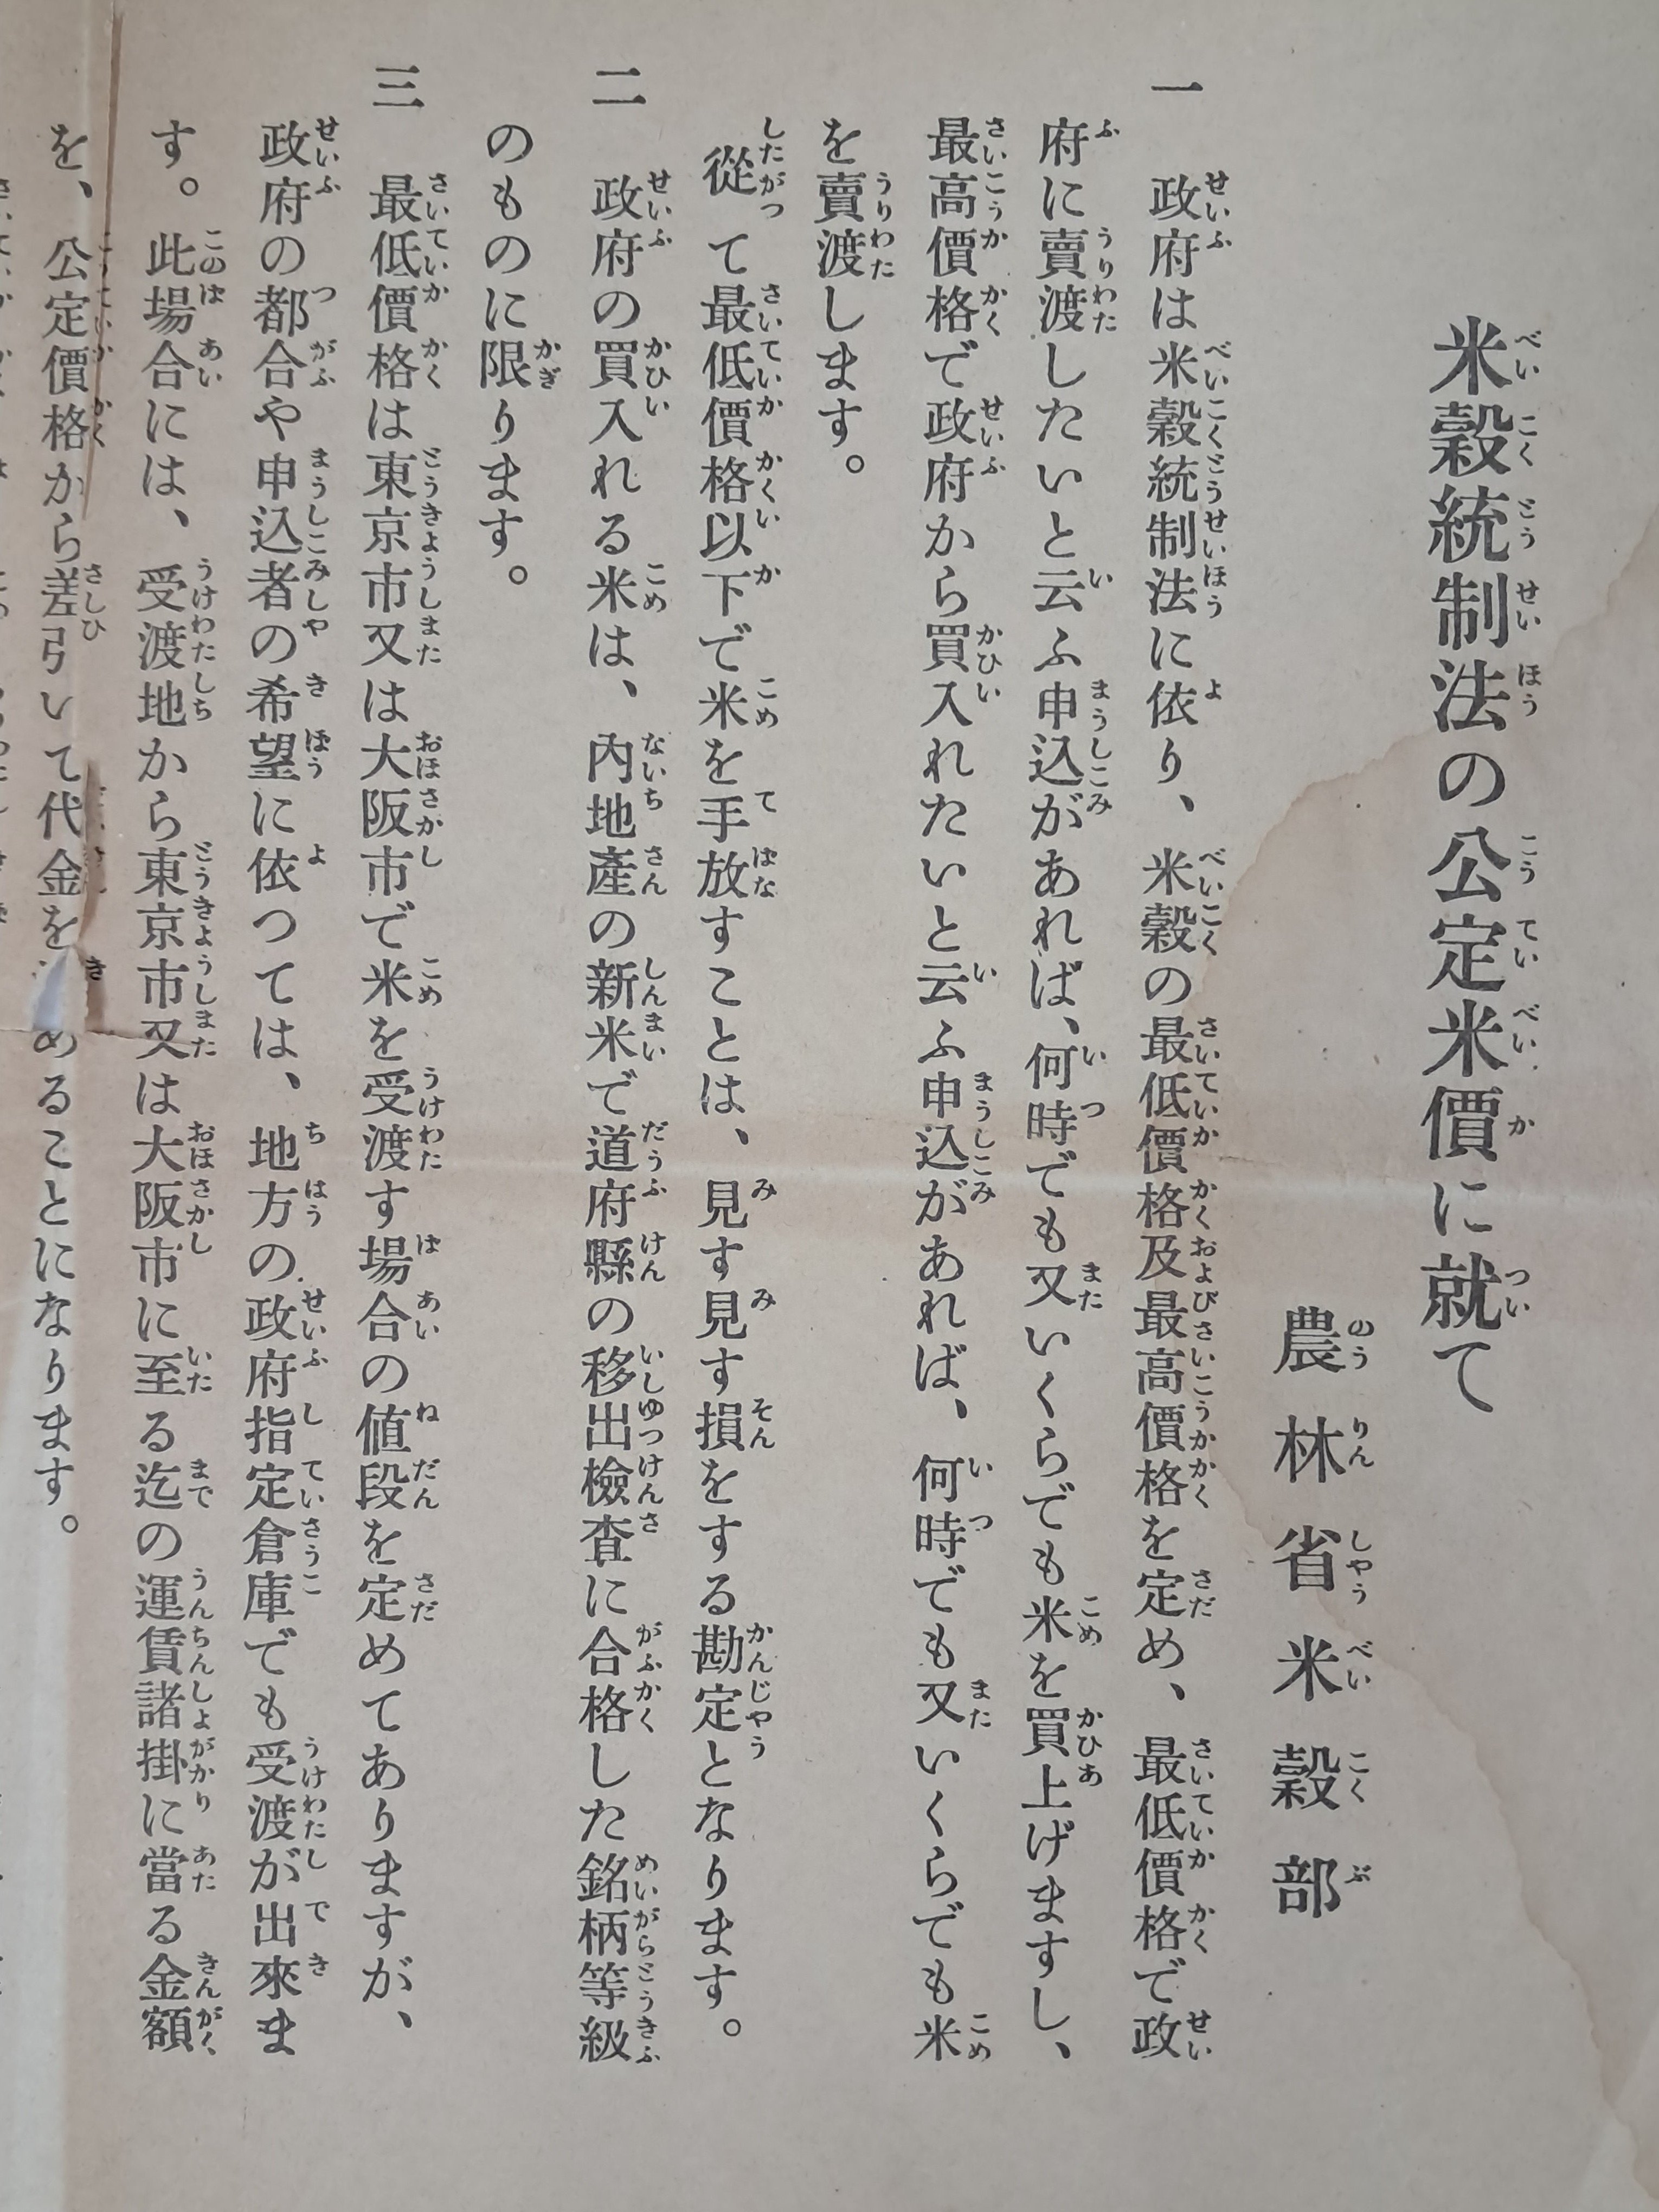 米穀統制法の公定米價に就て
農林省米穀部
一　政府は米穀統制法に依り、米穀の最低價格及最高價格を定め、最低價格で政
府に賣渡したいと云ふ申込があれば、何時でも又いくらでも米を買上げますし、
最高價格で政府から買入れたいと云ふ申込があれば、何時でも又いくらでも米
を賣渡します。
從て最低價格以下で米を手放すことは、見す見す損をする勘定となります。
二　政府の買入れる米は、內地產の新米で道府縣の移出檢査に合格した銘柄等級
のものに限ります。
三　最低價格は東京市又は大阪市で米を受渡す場合の値段を定めてありますが、
政府の都合や申込者の希望に依つては、地方の政府指定倉庫でも受渡が出來ま
す。此場合には、受渡地から東京市又は大阪市に至る迄の運賃諸掛に當る金額
を、公定價格から差引いて代金をめることになります。